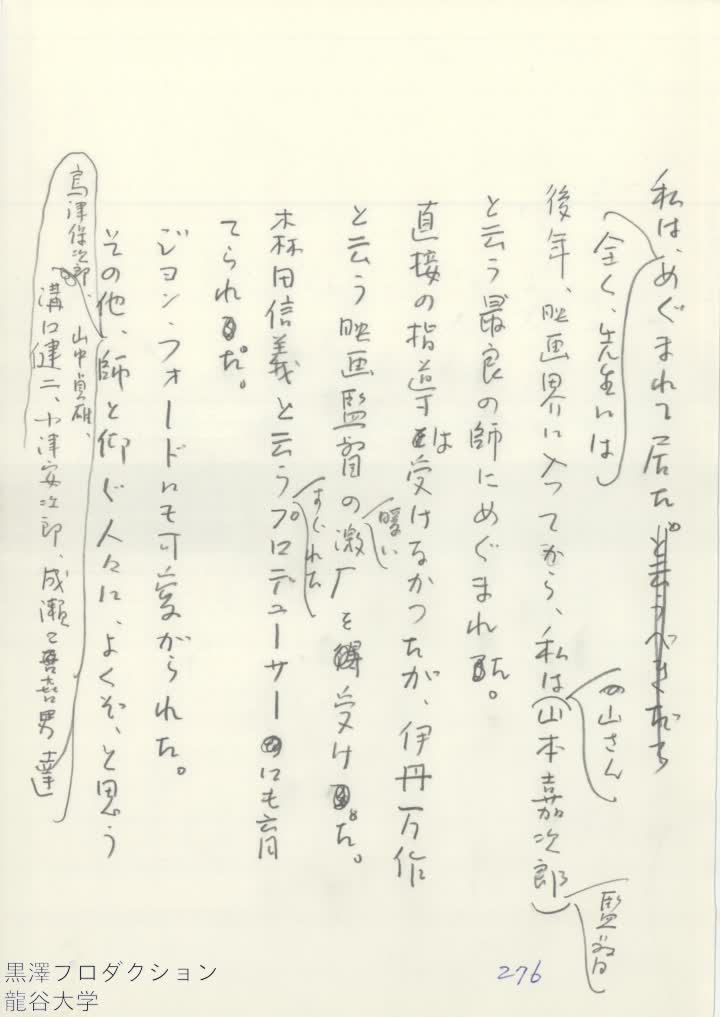 私は、めぐまれて居た。と云うべきだろ
全く、先生には
後年、映画界に入ってから、私は(山本嘉次郎)
の山さん
監督
と云う最良の師にめぐまれた。
直接の指導は受けなかったが、伊丹万作
と云う映画監督の激励を受けた。
暖い
森田信義と云うプロデューサーにも育
すぐれた
てられた。
ジョン・フォードにも可愛がられた。
その他、師と仰ぐ人々に、よくぞ、と思う
島津保次郎、山中貞雄、
溝口健二、小津安次郎、成瀬巳喜男達
276
黒澤プロダクション
龍谷大学